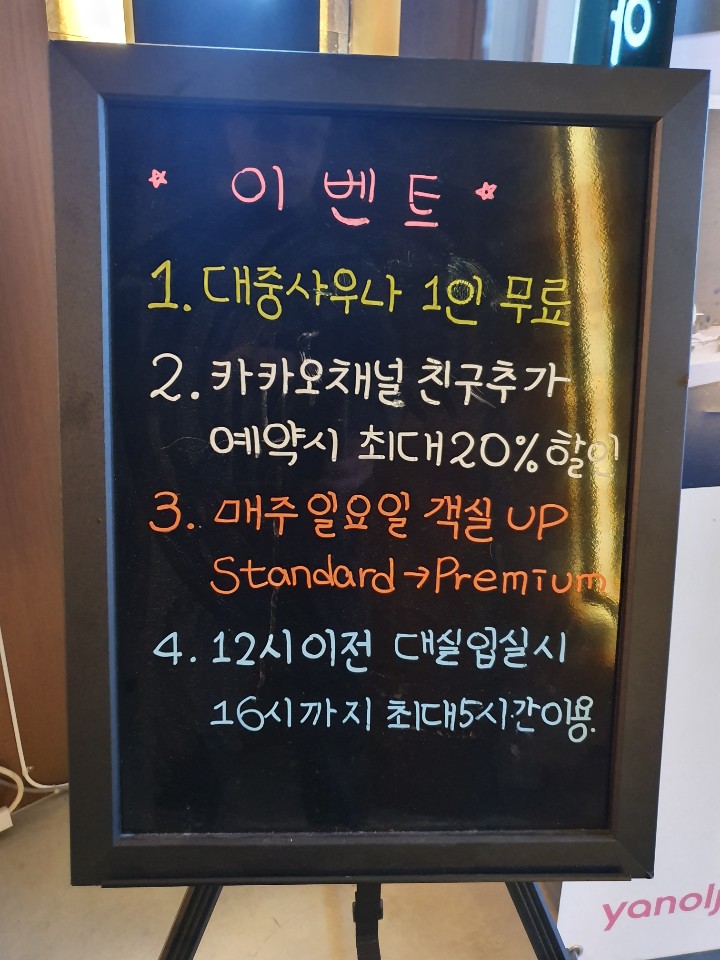 이벤트
1. 대중사우나 1인 무료
2. 카카오채널 친구추가
예약시 최대20% 할인
3. 매주 일요일 객실 UP
Standard→Premium
4. 12시이전 대실입실시
16시까지 최대5시간이용.
yanolj